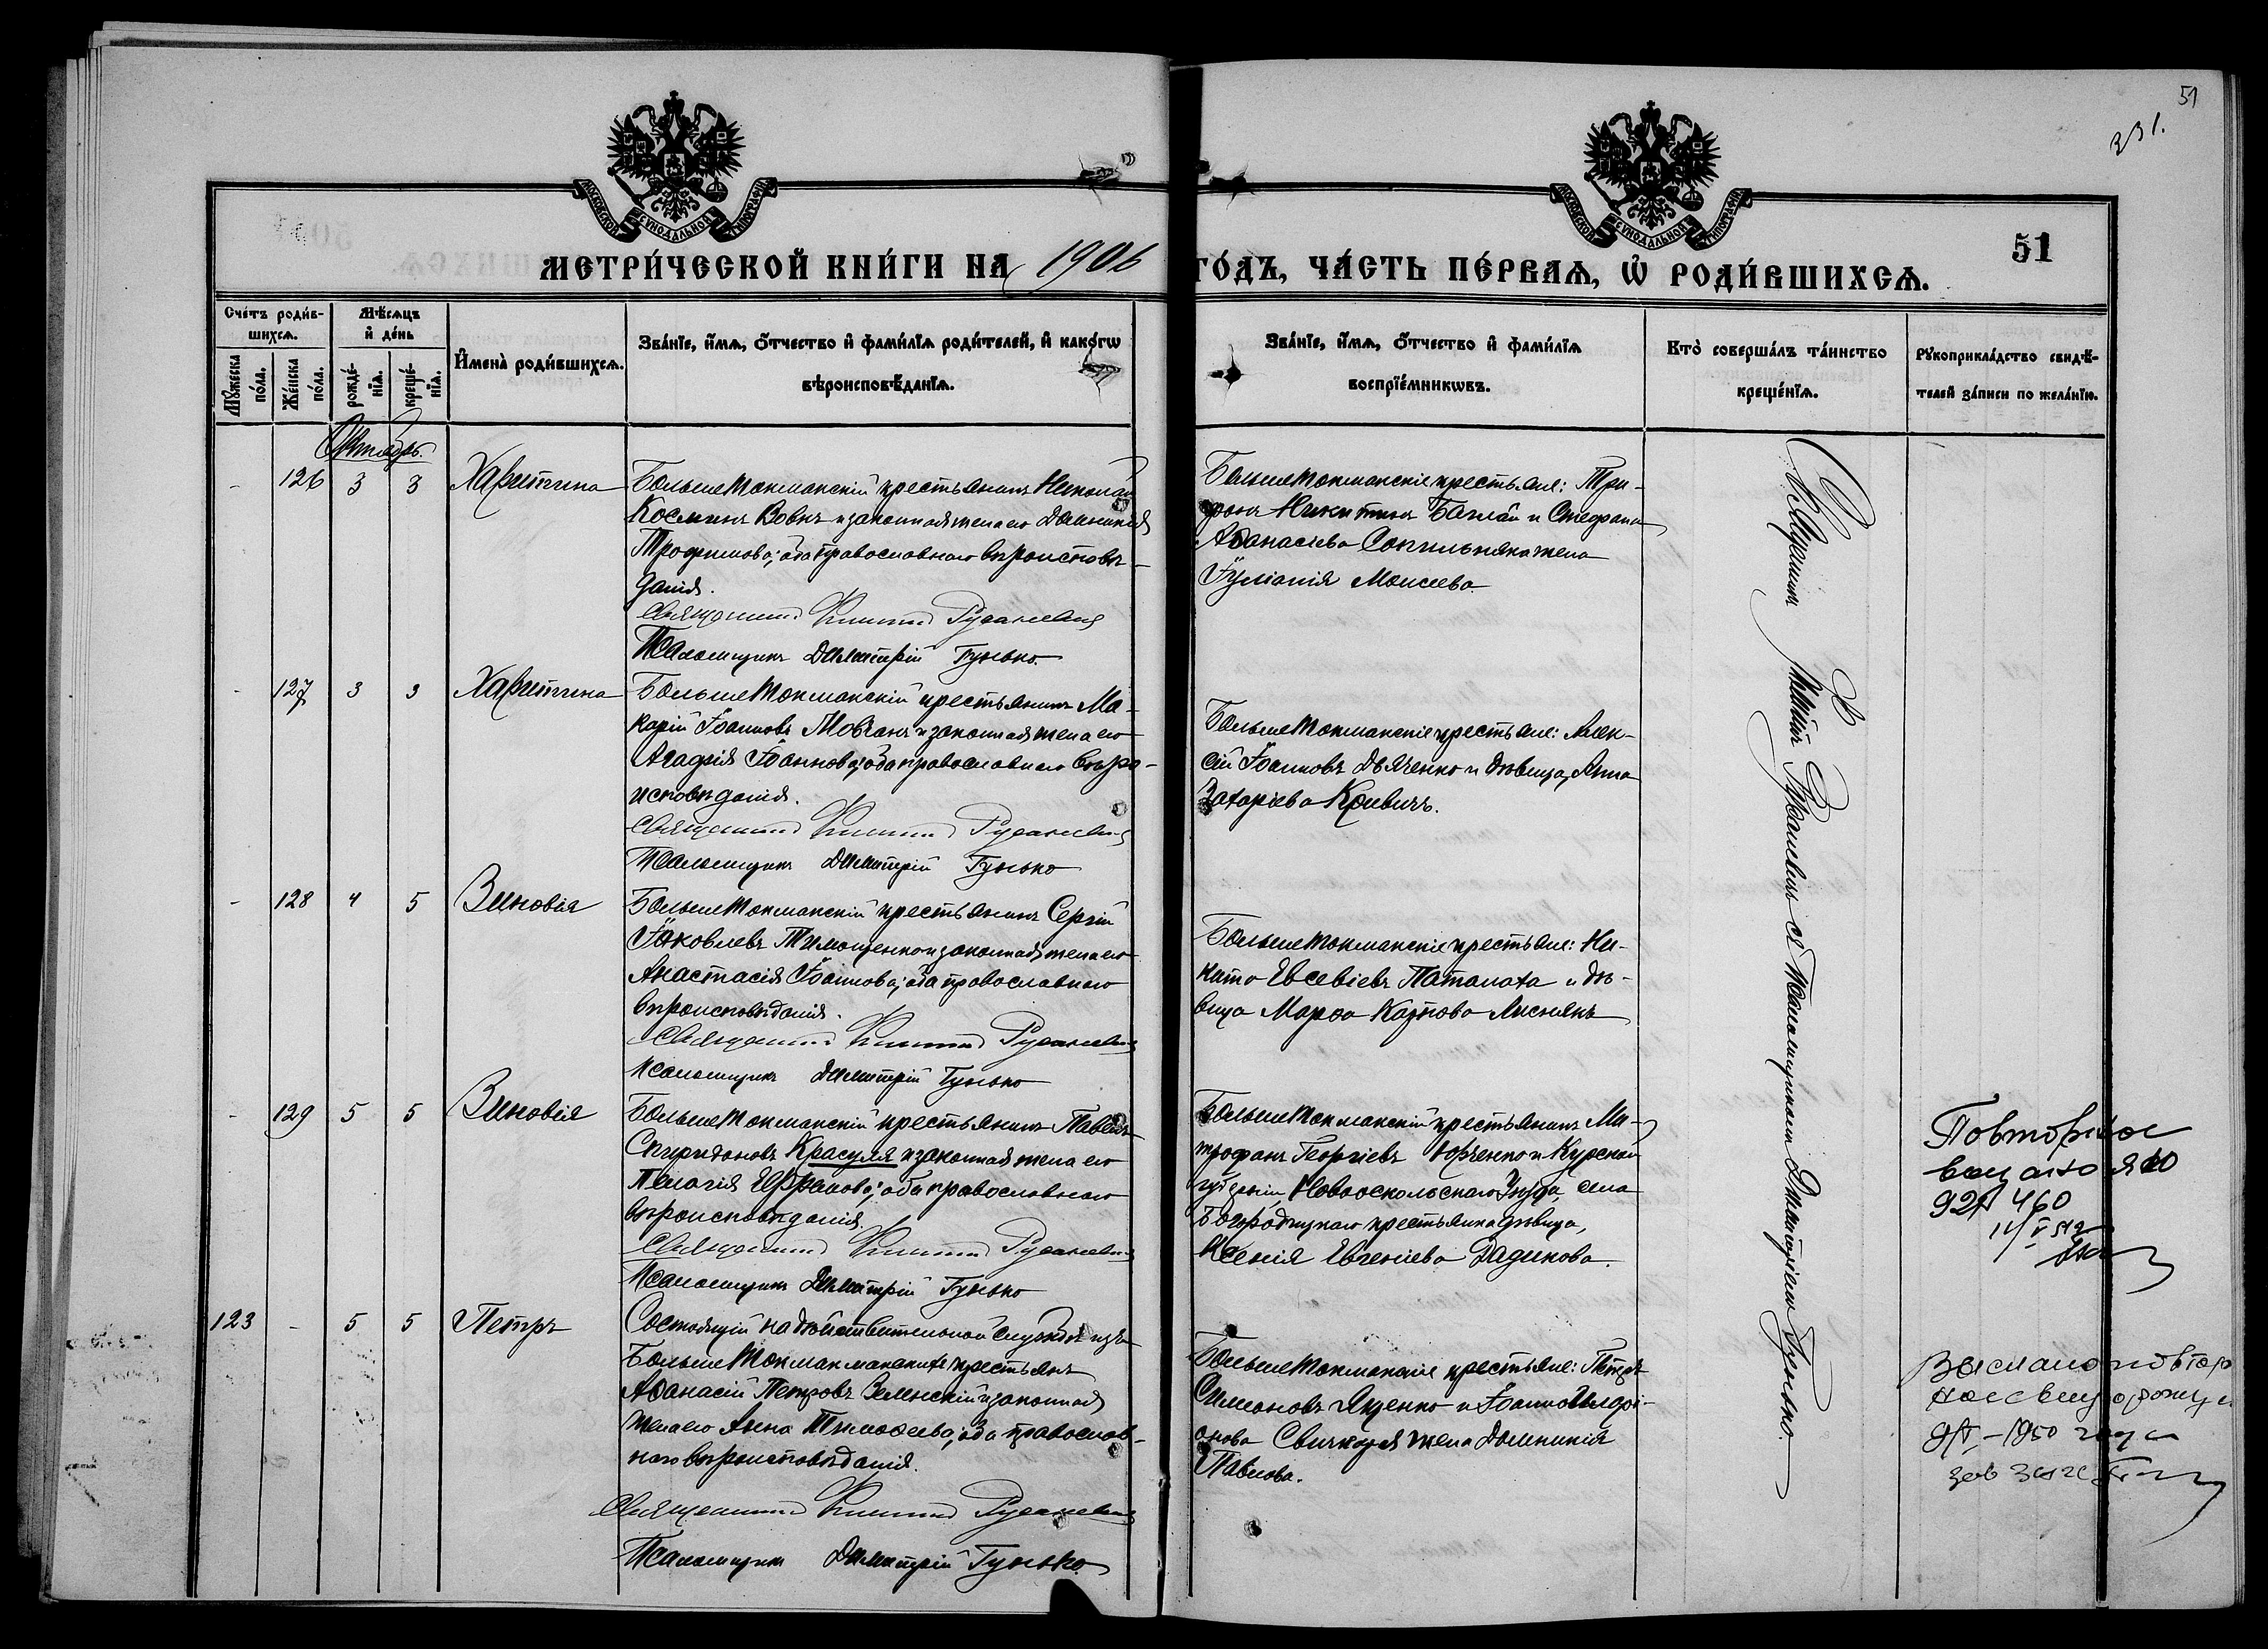 51
331.
МОСКОВСКОЙ СУНОДАЛЬНОЙ ТИПОГРАФІИ
МОСКОВСКОЙ СУНОДАЛЬНОЙ ТИПОГРАФІИ
МЕТРИ́ЧЕСКОЙ КНИ́ГИ НА 1906 ГО́ДЪ, ЧА́СТЬ ПЕ́РВАѦ, Ѡ҆ РОДИ́ВШИХСѦ.
51
Сче́тъ роди́в-
шихсѧ.
Мꙋ́жеска по́ла.
Же́нска по́ла.
Мѣ́сѧцъ
и҆ де́нь
рожде́-
нїѧ.
креще́-
нїѧ.
И҆мена̀ роди́вшихсѧ.
Зва́нїе, и҆́мѧ, ѻ҆́тчество и҆ фами́лїѧ роди́телей, и҆ какѡ́гѡ
вѣроисповѣ́данїѧ.
Зва́нїе, и҆́мѧ, ѻ҆́тчество и҆ фами́лїѧ
воспрїе́мникѡвъ.
Кто̀ соверша́лъ та́инство
креще́нїѧ.
Рꙋкоприкла́дство свидѣ́-
телей за́писи по жела́нїю.
Октябрь.
- 126 3 3 Харитина
БольшеТокмакскій крестьянинъ Николай
Косминъ Вовкъ и законная жена его Домникія
Трофимова; оба православнаго вѣроисповѣ-
данія.
Священникъ Никита Рудакевичъ
Псаломщикъ Димитрій Гунько.
БольшеТокмакскіе крестьяне: Три-
фонъ Никитинъ Баглай и Стефана
Аѳанасіева Сопильняка жена
Іуліанія Моисеева.
- 127 3 3 Харитина
БольшеТокмакскій крестьянинъ Ма-
карій Іоанновъ Мовчанъ и законная жена его
Агафія Іоаннова; оба православнаго вѣро-
исповѣданія.
Священникъ Никита Рудакевичъ
Псаломщикъ Димитрій Гунько
БольшеТокмакскіе крестьяне: Алек-
сій Іоанновъ Дьяченко и дѣвица Анна
Захаріева Кривичъ.
- 128 4 5 Зиновія
БольшеТокмакскій крестьянинъ Сергій
Іаковлевъ Тимошенко и законная жена его
Анастасія Іоаннова; оба православнаго
вѣроисповѣданія.
Священникъ Никита Рудакевичъ
Псаломщикъ Димитрій Гунько
БольшеТокмакскіе крестьяне: Ни-
кита Евсевіевъ Паталаха и дѣ-
вица Марѳа Карпова Лиснякъ
- 129 5 5 Зиновія
БольшеТокмакскій крестьянинъ Павелъ
Спиридоновъ Красуля и законная жена его
Пелагія Ефремова; оба православнаго
вѣроисповѣданія.
Священникъ Никита Рудакевичъ
Псаломщикъ Димитрій Гунько
БольшеТокмакскій крестьянинъ Ми-
трофанъ Георгіевъ Юрченко и Курской
губерніи, Новооскольскаго Уѣзда, села
Богородицкаго крестьянка дѣвица,
Ксенія Евгеніева Дядикова.
Повторное
460
123 - 5 5 Петръ
Состоящій на дѣйствительной службѣ изъ
БольшеТокмакскихъ крестьянъ
Аѳанасій Петровъ Зеленскій и законная
жена его Анна Тимоѳеева; оба православ-
наго вѣроисповѣданія.
Священникъ Никита Рудакевичъ
Псаломщикъ Димитрій Гунько.
БольшеТокмакскіе крестьяне: Петръ
Симеоновъ Яценко и Іоанна Иларі-
онова Свичкаря жена Домникія
Павлова.
1950 года
Священникъ Никита Рудакевичъ съ Псаломщикомъ Димитріемъ Гунько.